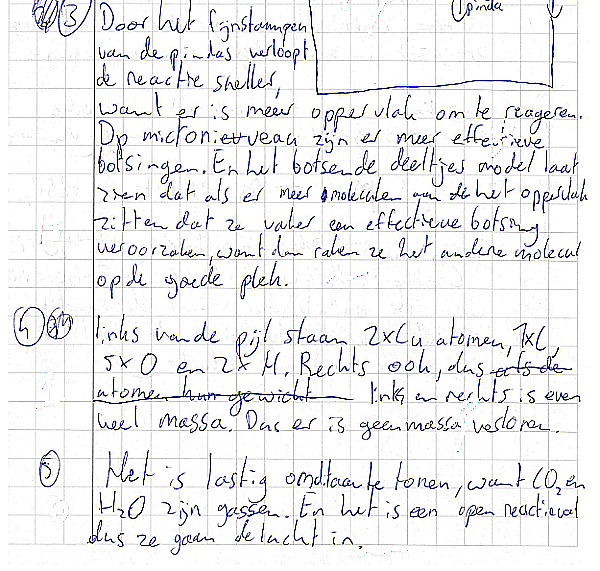 pinda
3 Door het fijnstampen
van de pindas verloopt
de reactie sneller,
want er is meer oppervlak om te reageren.
Op micronieuveau zijn er meer effectieve
botsingen. En het botsende deeltjes model laat
zien dat als er meer moleculen aan de het oppervlak
zitten dat ze vaker een effectieve botsing
veroorzaken, want dan raken ze het andere molecuul
op de goede plek.
4 links van de pijl staan 2xCu atomen, 1xC,
5xO en 2xH. Rechts ook, dus als de
atomen hun gewicht links en rechts is even
veel massa. Dus er is geen massa verloren.
5 Het is lastig omdit aan te tonen, want CO2 en
H2O zijn gassen. En het is een open reactievat
dus ze gaan de lucht in.